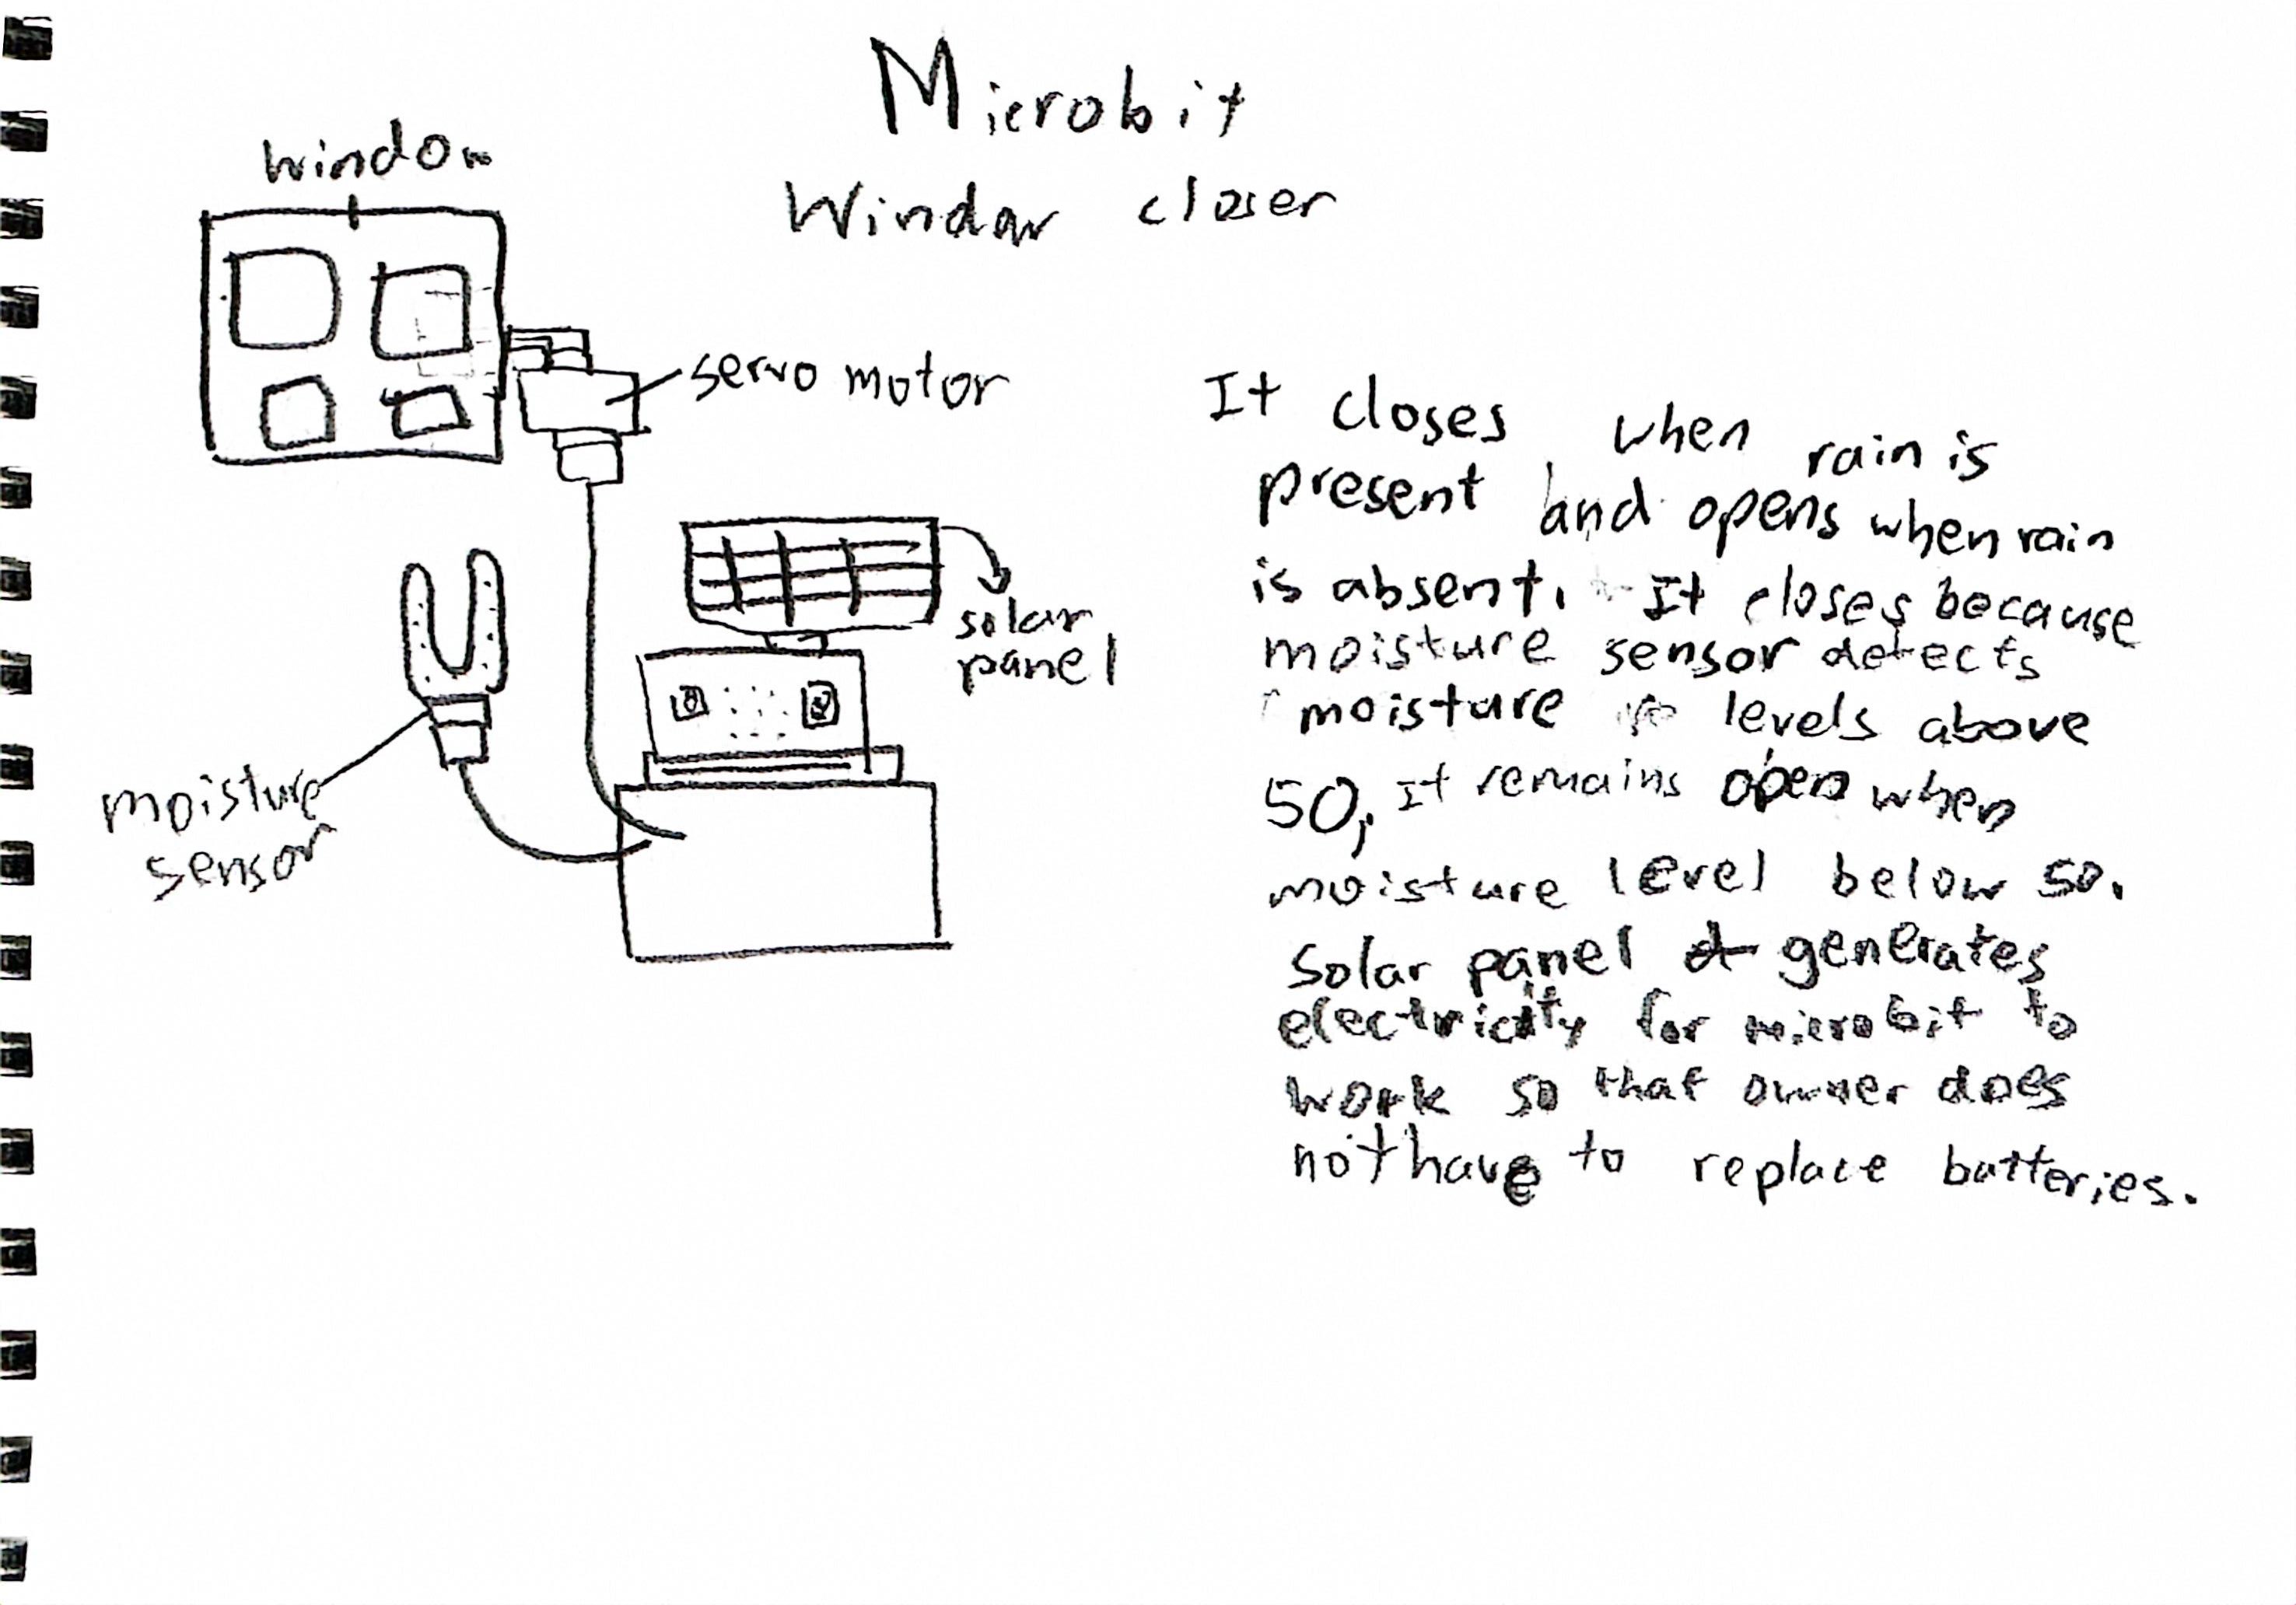 Microbit
Window closer
window
servo motor
solar
panel
moisture
sensor
It closes when rain is
present and opens when rain
is absent. It closes because
moisture sensor detects
moisture levels above
50, It remains open when
moisture level below 50.
Solar panel generates
electricity for microbit to
work so that owner does
not have to replace batteries.